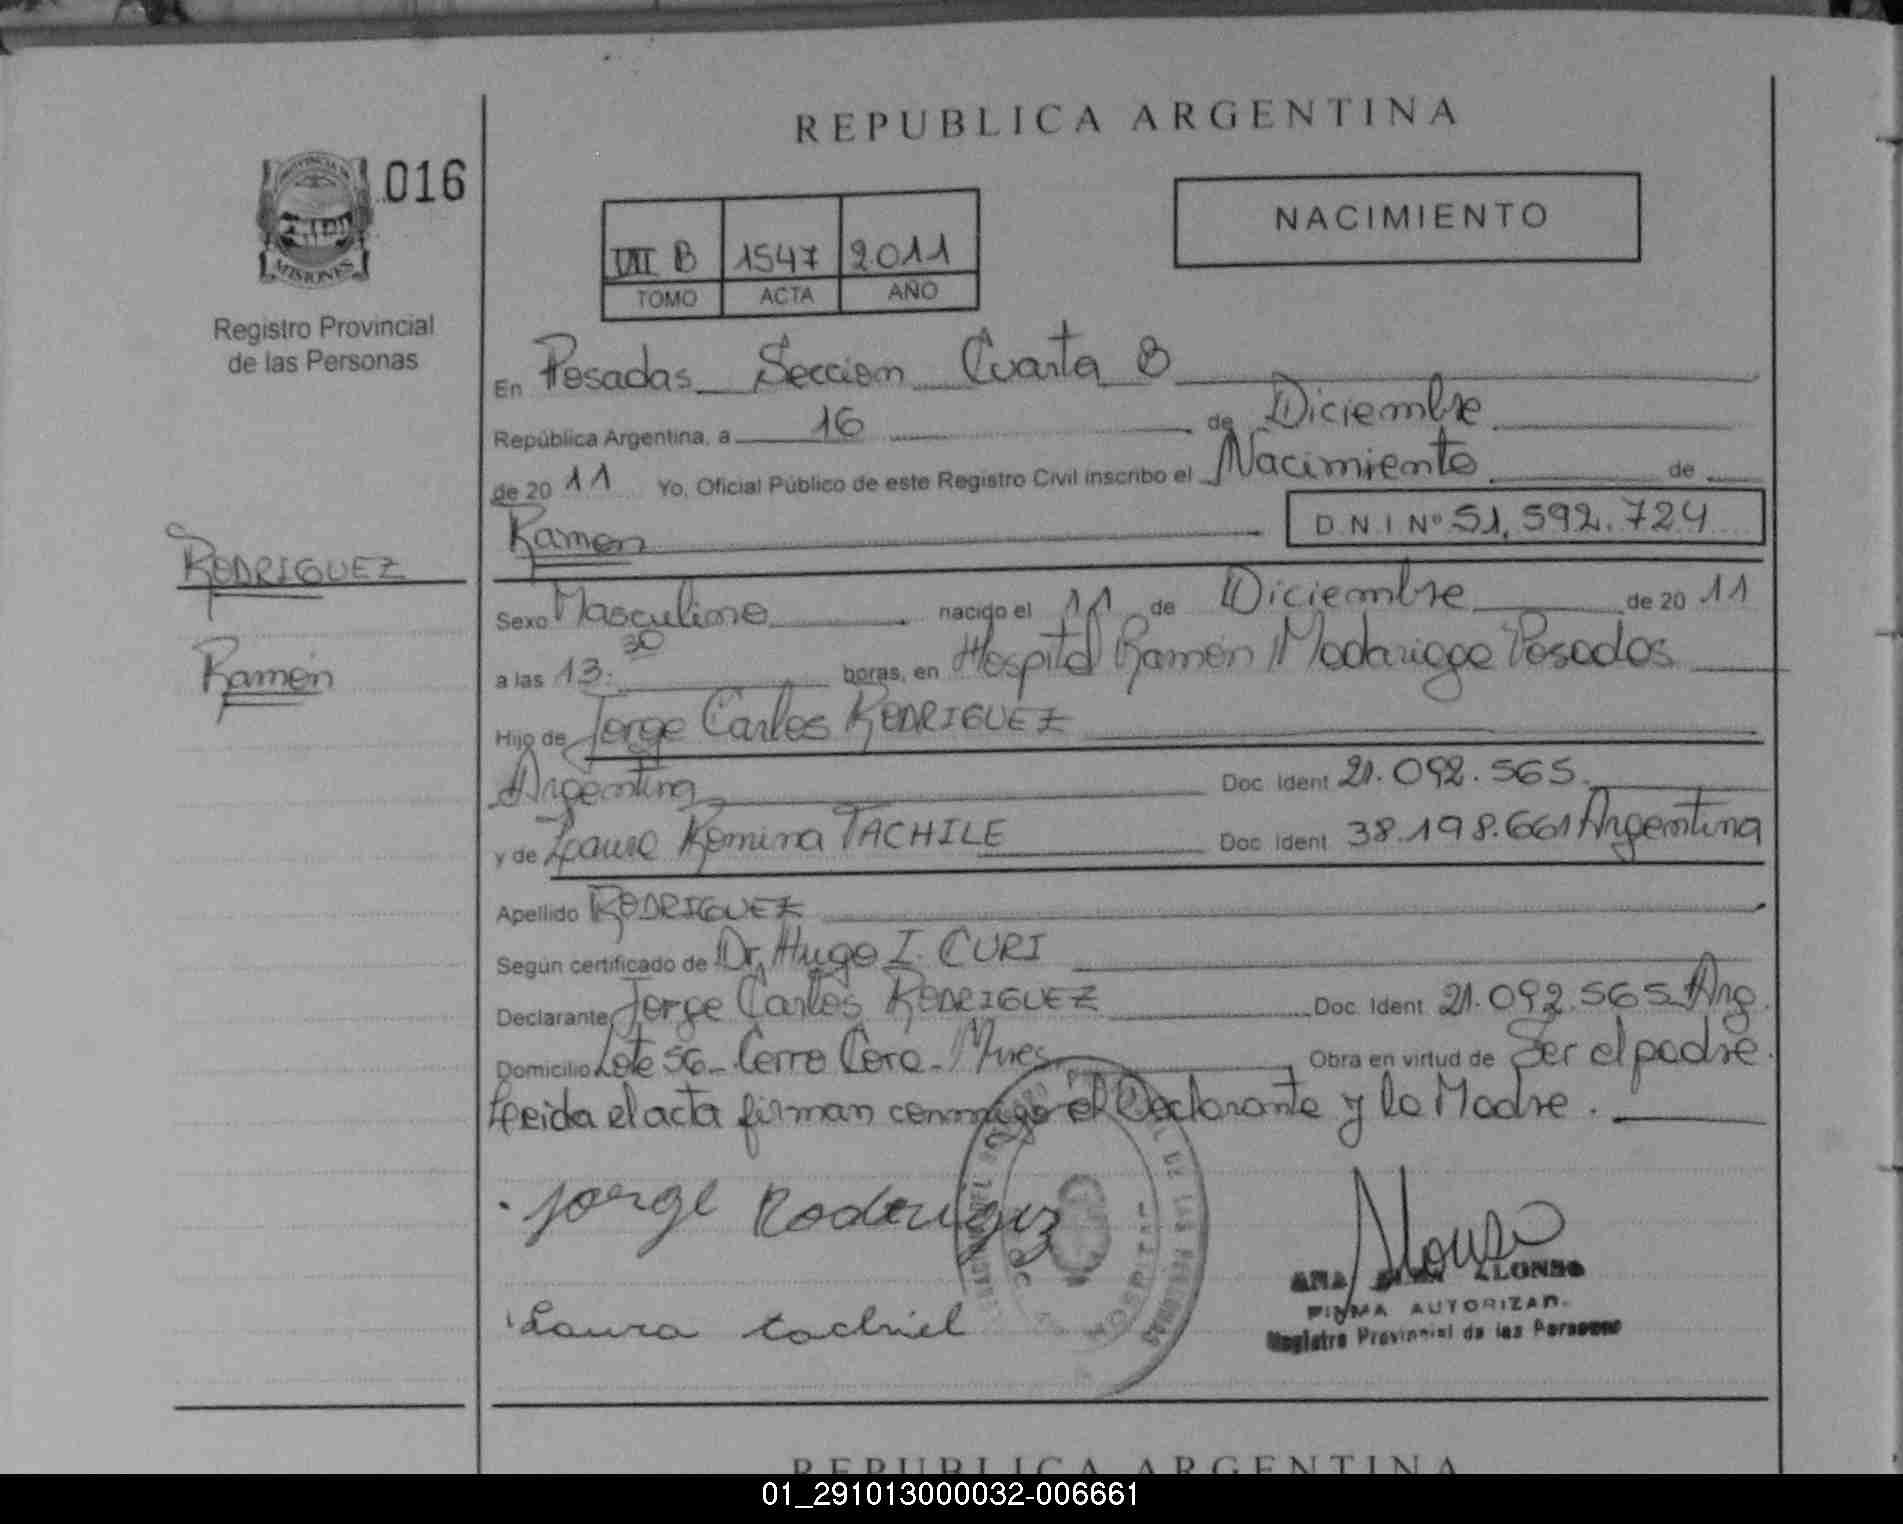 REPUBLICA ARGENTINA
016
NACIMIENTO
MISIONES
VII B 1547 2011
TOMO ACTA AÑO
Registro Provincial
de las Personas
En Posadas Seccion Cuarta B
República Argentina, a 16 de Diciembre
de 20 11 Yo, Oficial Público de este Registro Civil inscribo el Nacimiento de
Ramón D.N.I Nº 51.592.724
RODRIGUEZ
Ramón
Sexo Masculino nacido el 11 de Diciembre de 20 11
a las 13:30 horas, en Hospital Ramón Madariaga Posadas
Hijo de Jorge Carlos RODRIGUEZ
Argentina Doc. Ident 21.092.565.
y de Laura Romina TACHILE Doc. Ident 38.198.661 Argentina
Apellido RODRIGUEZ
Según certificado de Dr. Hugo I. CURI
Declarante Jorge Carlos RODRIGUEZ Doc. Ident 21.092.565 Arg.
Domicilio Lote 56 - Cerro Cora - Mnes Obra en virtud de Ser el padre.
Leida el acta firman conmigo el Declarante y la Madre.
Jorge Rodriguez
Laura tachiel
Alonso
ANA ALONSO
FIRMA AUTORIZAD.
Registro Provincial de las Personas
REPUBLICA ARGENTINA
01_291013000032-006661